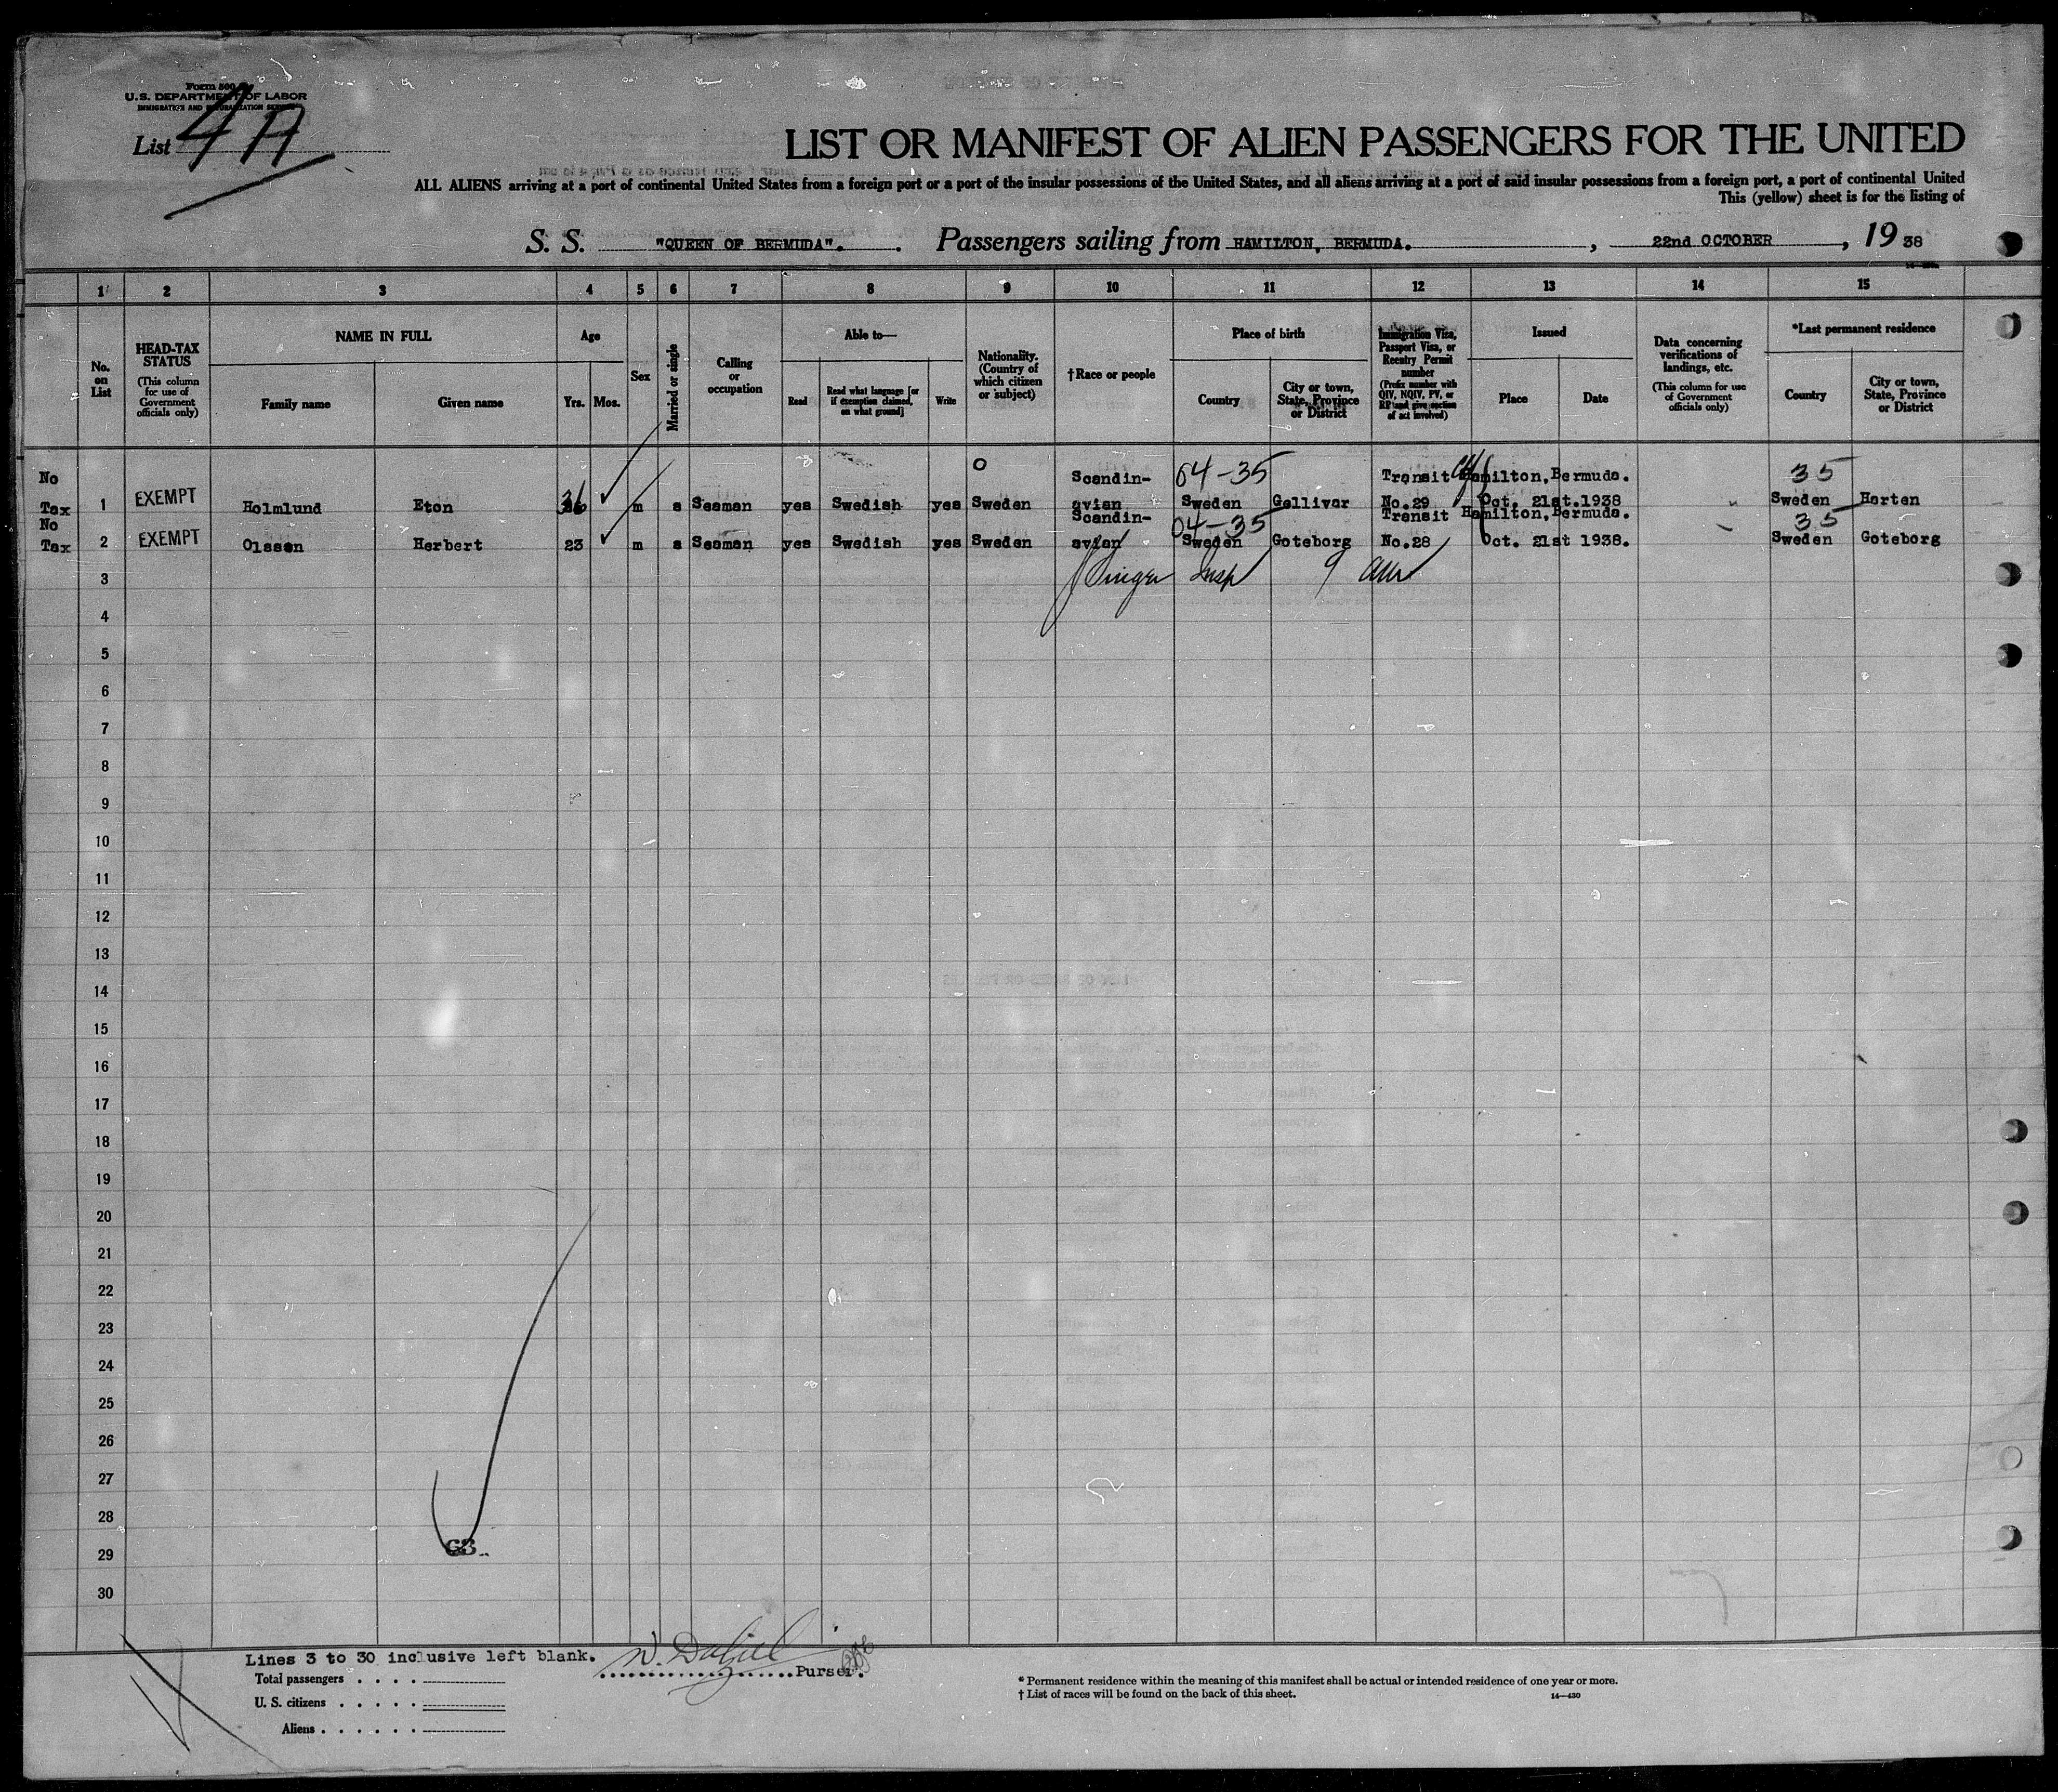 Form 500
U.S. DEPARTMENT OF LABOR
IMMIGRATION AND NATURALIZATION SERVICE
List 4A
LIST OR MANIFEST OF ALIEN PASSENGERS FOR THE UNITED
ALL ALIENS arriving at a port of continental United States from a foreign port or a port of the insular possessions of the United States, and all aliens arriving at a port of said insular possessions from a foreign port, a port of continental United
This (yellow) sheet is for the listing of
S. S. "QUEEN OF BERMUDA". Passengers sailing from HAMILTON, BERMUDA. , 22nd OCTOBER , 19 38
1 2 3 4 5 6 7 8 9 10 11 12 13 14 15
No. on List
HEAD-TAX STATUS (This column for use of Government officials only)
NAME IN FULL
Family name
Given name
Age
Yrs. Mos.
Sex
Married or single
Calling or occupation
Able to—
Read
Read what language [or if exemption claimed, on what ground]
Write
Nationality. (Country of which citizen or subject)
†Race or people
Place of birth
Country
City or town, State, Province or District
Immigration Visa, Passport Visa, or Reentry Permit number (Prefix number with QIV, NQIV, PV, or RP and give section of act involved)
Issued
Place
Date
Data concerning verifications of landings, etc. (This column for use of Government officials only)
*Last permanent residence
Country
City or town, State, Province or District
No Scandin- 04-35 Transit Hamilton, Bermuda. 35
Tax 1 EXEMPT Holmlund Eton 36 m s Seaman yes Swedish yes Sweden avian Sweden Gellivar No.29 Oct. 21st.1938 Sweden Horten
No Scandin- 04-35 Transit Hamilton, Bermuda. 35
Tax 2 EXEMPT Olssen Herbert 23 m s Seaman yes Swedish yes Sweden avian Sweden Goteborg No.28 Oct. 21st 1938. Sweden Goteborg
3 Insp 9 am
4
5
6
7
8
9
10
11
12
13
14
15
16
17
18
19
20
21
22
23
24
25
26
27
28
29
30
Lines 3 to 30 inclusive left blank.
Purser.
Total passengers
U. S. citizens
Aliens
* Permanent residence within the meaning of this manifest shall be actual or intended residence of one year or more.
† List of races will be found on the back of this sheet. 14—430